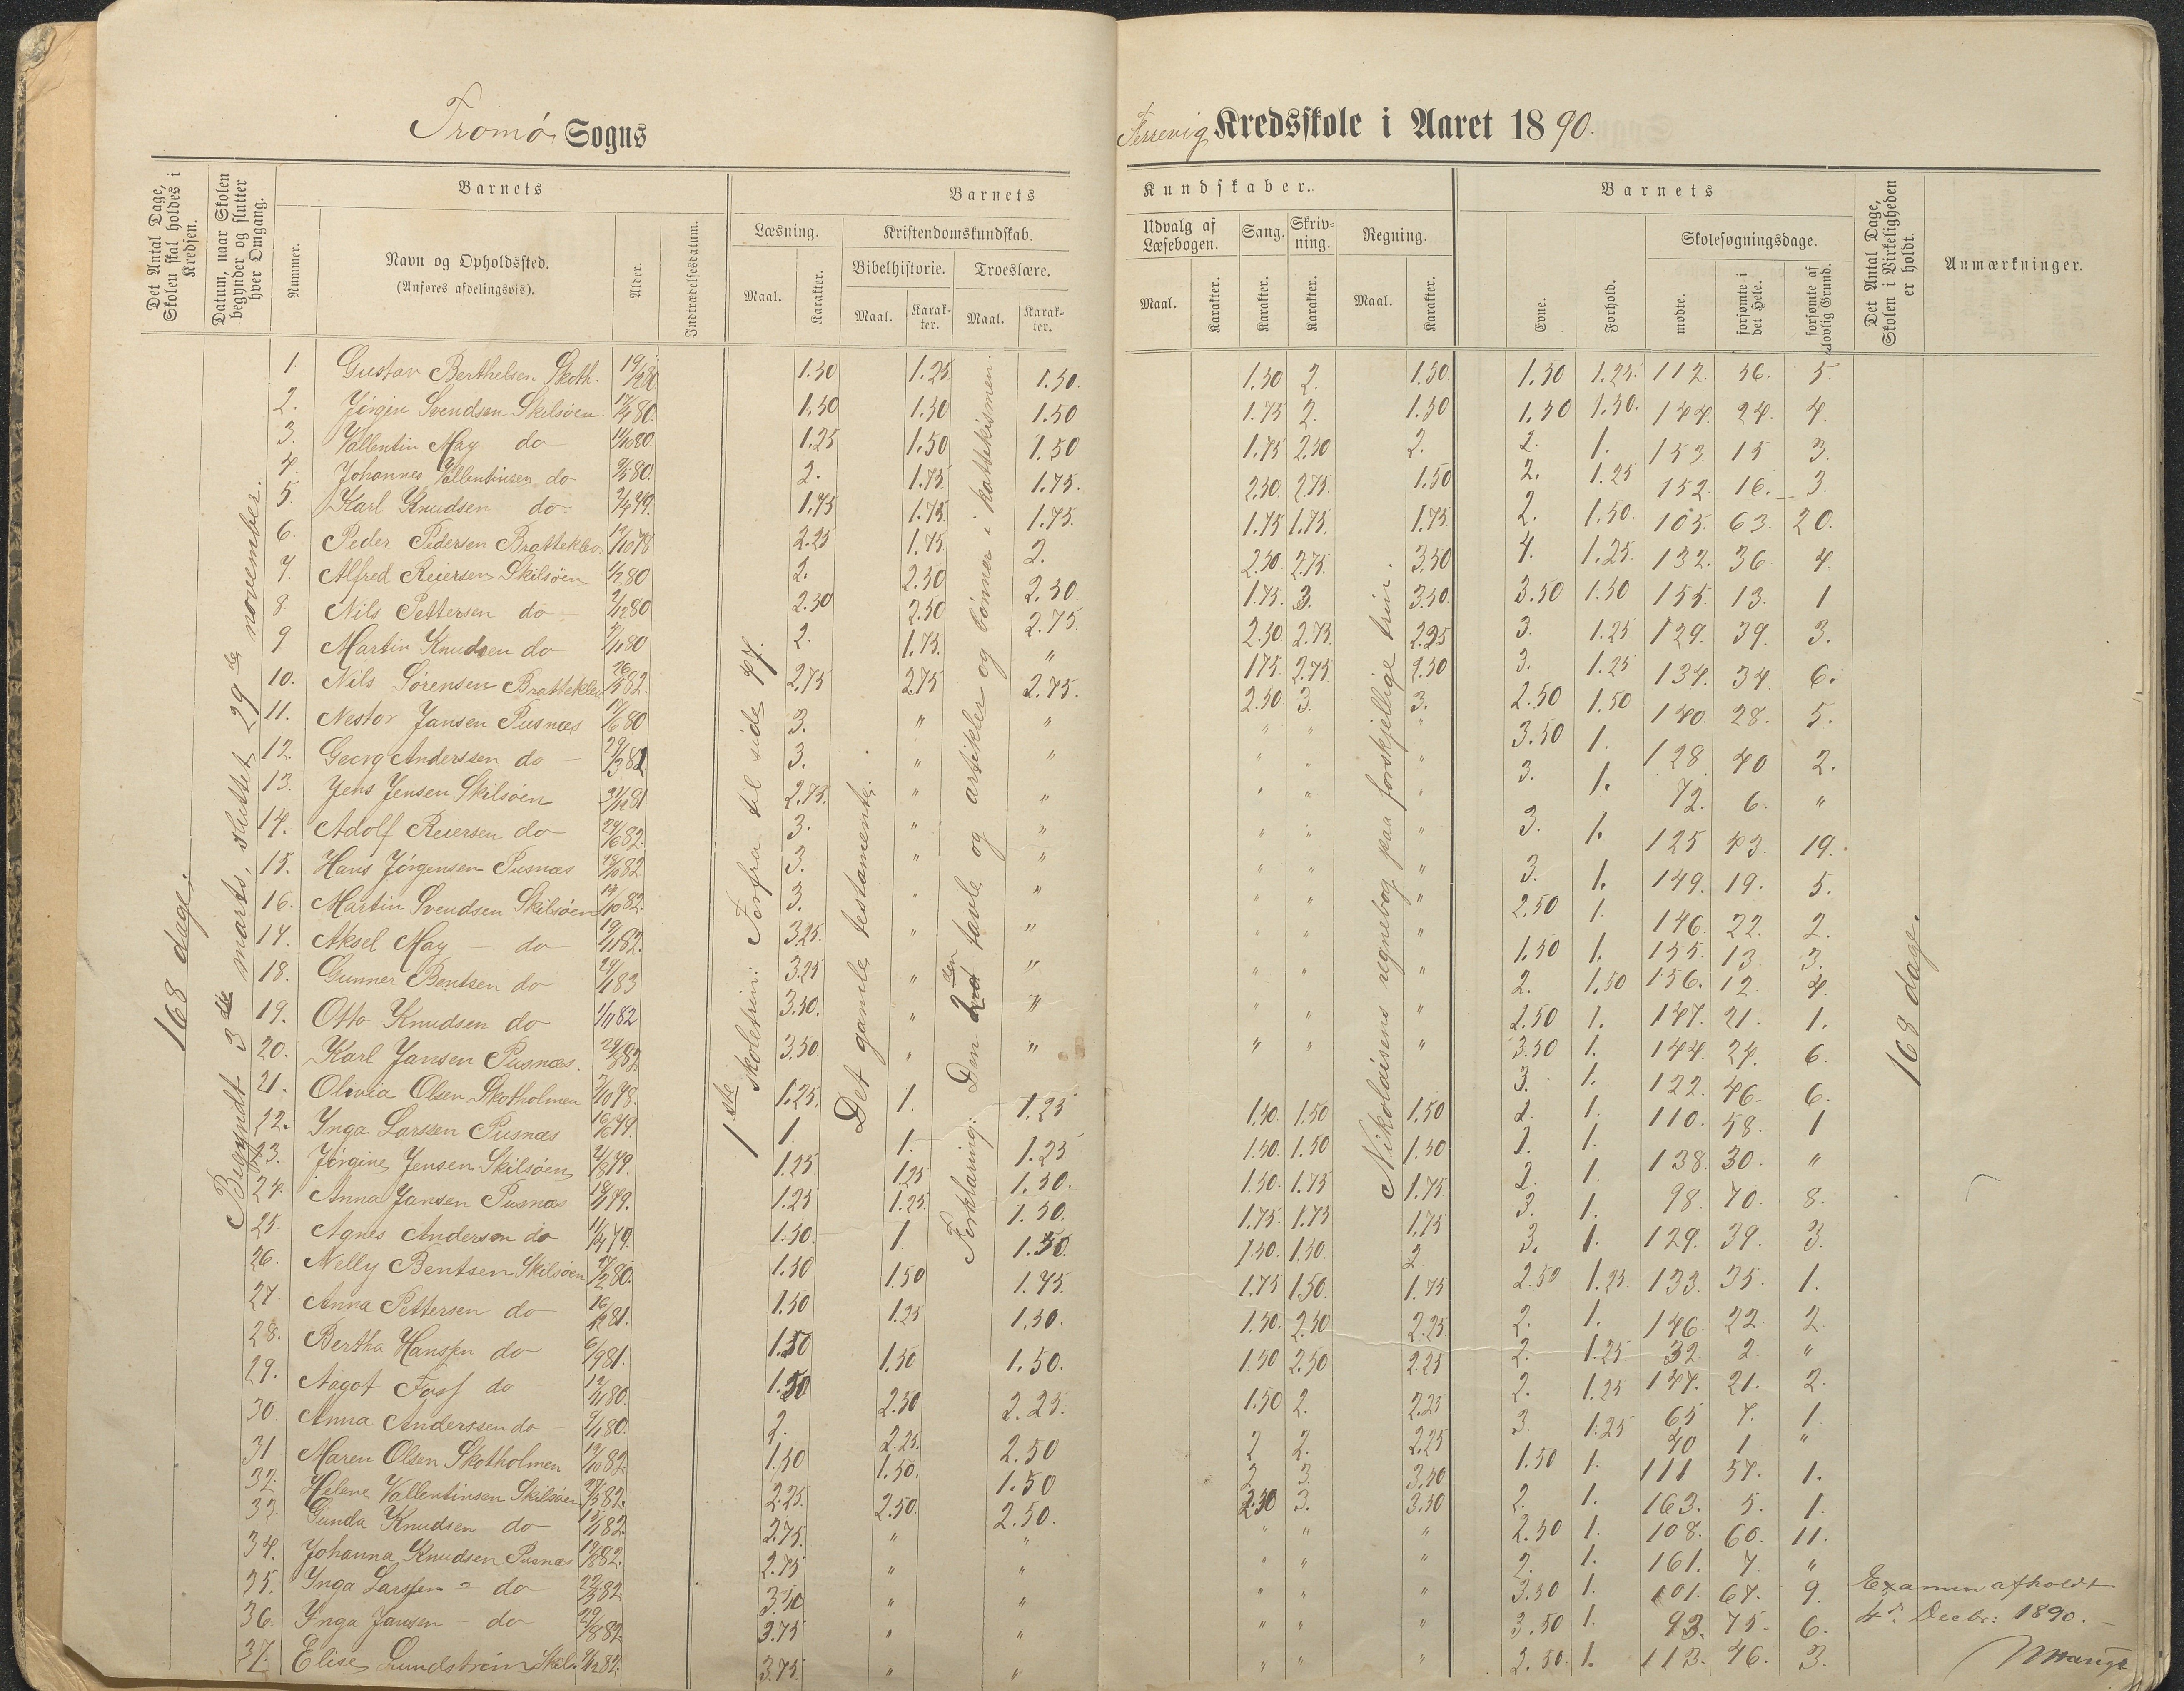 Tromø Sogns
Færvig Kredsskole i Aaret 1890.
Det Antal Dage, Skolen skal holdes i Kredsen.
Datum, naar Skolen begynder og slutter hver Omgang.
Barnets
Nummer.
Navn og Opholdssted.
(Anføres afdelingsvis).
Alder.
Indtrædelsesdatum.
Barnets
Læsning.
Kristendomskundskab.
Bibelhistorie.
Troeslære.
Maal.
Karakter.
Maal.
Karakter.
Maal.
Karakter.
Kundskaber.
Udvalg af Læsebogen.
Sang.
Skrivning.
Regning.
Maal.
Karakter.
Karakter.
Karakter.
Maal.
Karakter.
Barnets
Evne.
Forhold.
Skolesøgningsdage.
mødte.
forsømte i det Hele.
forsømte af ulovlig Grund.
Det Antal Dage, Skolen i Virkeligheden er holdt.
Anmærkninger.
168 dage.
Begyndt 3die marts, sluttet 29de november.
1ste skoletrin: Forfra til side 47.
Det gamle testamente.
Forklaring: Den 2den tavle og artikler og bønner i kattekismen.
Nikolaisens regnebog paa forskjellige trin.
168 dage.
1. Gustav Berthelsen Skoth. 1.50 1.25 1.50. 1.50 2. 1.50. 1.50 1.25. 112. 56. 5.
2. Jörgen Svendsen Skilsöen 17/4 80. 1.50 1.50 1.50 1.75 2. 1.50 1.50 1.50. 144. 24. 4.
3. Vallentin May do 11/10 80 1.25 1.50 1.50 1.75 2.50 2. 2. 1. 153. 15 3.
4. Johannes Vallentinsen do 2. 1.75. 1.75. 2.50. 2.75. 1.50 2. 1.25 152. 16. 3.
5. Karl Knudsen do 1.75 1.75. 1.75. 1.75 1.75. 1.75. 2. 1.50. 105. 63. 20.
6. Peder Pedersen Bratteklev 2.25 1.75. 2. 2.50. 2.75. 3.50 4. 1.25. 132. 36. 4
7. Alfred Reiersen Skilsöen 1/2 80 2. 2.50 2.50. 1.75. 3. 3.50. 3.50 1.50 155. 13. 1
8. Nils Pettersen do 2/12 80 2.50 2.50 2.75. 2.50. 2.75. 2.25 3. 1.25 129. 39. 3.
9 Martin Knudsen do 2. 1.75. " 175 2.75. 3. 1.25 134. 34. 6.
10. Nils Sörensen Bratteklev 2.75 2.75 2.75. 2.50 3. 3. 2.50 1.50 140. 28. 5.
11. Nestor Jansen Pusnæs 3. " " " " " 3.50 1. 128. 40 2.
12. Georg Anderssen do 3. " " " " " 3. 1. 72. 6. "
13. Jens Jensen Skilsöen 31/12 81 2.75. " " " " " 3. 1. 125 43. 19.
14. Adolf Reiersen do 24/6 82. 3. " " " " " 3. 1. 149. 19. 5.
15. Hans Jörgensen Pusnæs 3. " " " " " 2.50 1. 146. 22. 2.
16. Martin Svendsen Skilsöen 3. " " " " " 1.50 1. 155. 13. 3.
17. Aksel May do 19/11 82. 3.25. " " " " " 2. 1.50 156. 12. 4.
18. Gunner Bentsen do 3.25 " " " " " 2.50 1. 147. 21. 1.
19. Otto Knudsen do 1/11 82 3.50. " " " " " 3.50 1. 144. 24. 6.
20. Karl Jansen Pusnæs. 3.50. " " " " " 3. 1. 122. 46. 6.
21. Olovia Olsen Skotholmen 1.25. 1. 1.25 1.50. 1.50 1.50 2. 1. 110. 58. 1
22. Ynga Larssen Pusnæs 1. 1. 1.25 1.50. 1.50 1.50 1. 138. 30. "
23. Jörgine Jensen Skilsöen 1.25. 1.25 1.50. 1.50. 1.75 1.75. 2. 1. 98. 70. 8.
24. Anna Jansen Pusnæs 1.25 1.25. 1.50. 1.75. 1.75 1.75 3. 1. 129. 39. 3.
25. Agnes Andersen do 1.50. 1. 1.50. 1.50. 1.50. 2. 3. 1. 133. 35. 1.
26. Nelly Bentsen Skilsöen 1.50 1.50 1.75. 1.75 1.50. 1.75 2.50 1.25. 146. 22. 2
27. Anna Pettersen do 16/12 81. 1.50 1.25 1.50. 1.50. 2.50 2.25. 2. 1. 32. 2. "
28. Bertha Hanssen do 6/9 81. 1.50 1.50 1.50. 1.50 2.50 2.25 2. 1.25 147. 21. 2.
29. Aagot Foss do 1.50 2.50 2.25. 1.50 2. 2.25 2. 1.25 65 7. 1
30. Anna Anderssen do 2. 2.25. 2.50 2 2. 2.25 3. 1.25 40 1 "
31 Maren Olsen Skotholmen 1.50 1.50. 1.50 2 3. 1.50 1. 111 57. 1.
32. Helene Vallentinsen Skilsöen 2.25. 2.50. 2.50. 2.50 3. 3.50 2. 1. 163. 5. 1.
33. Gunda Knudsen do 15/11 82. 2.75. " " " " " 2.50 1. 108. 60. 11.
34. Johanna Knudsen Pusnæs 2.75 " " " " " 2. 1. 161. 7. "
35. Ynga Larssen do 3.50 " " " " " 3.50 1. 101. 67. 9.
36. Ynga Jansen do 3.75 " " " " " 3.50 1. 93. 75. 6.
37. Elise Lundström Skils. 3.75. " " " " " 2.50. 1. 113. 46. 3.
Examen afholdt
4d. Decbr: 1890.